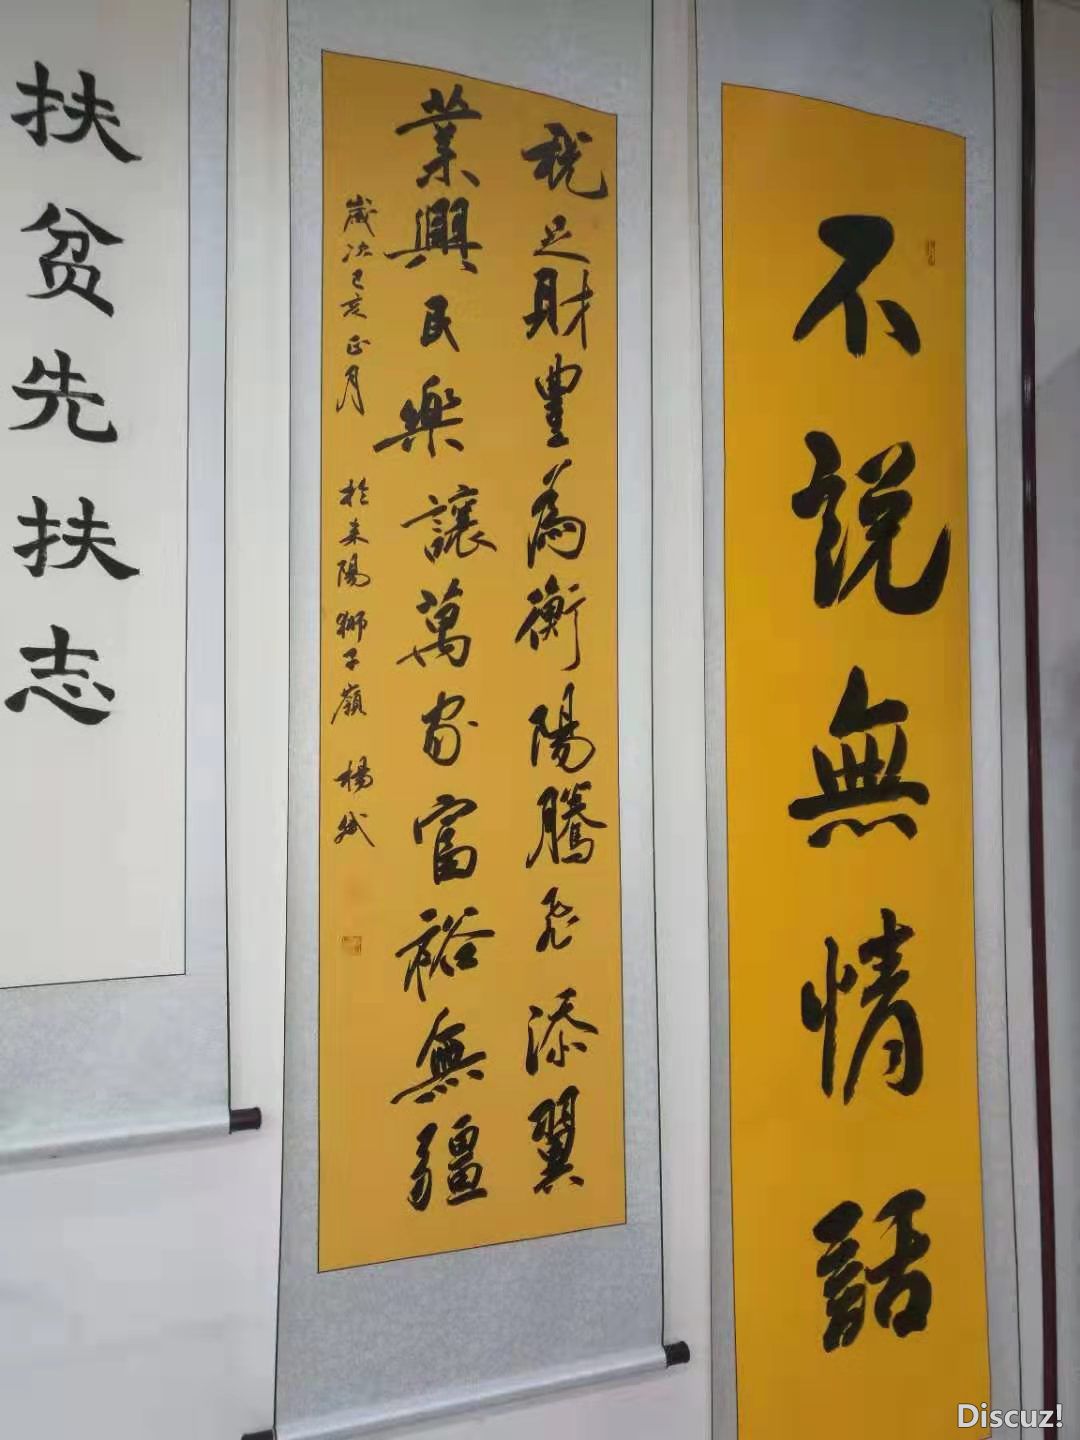 不說無情話
稅足財豐為衡陽騰飛添翼
業興民樂讓萬家富裕無疆
歲次己亥正月 於耒陽獅子嶺 楊斌
扶贫先扶志
Discuz!